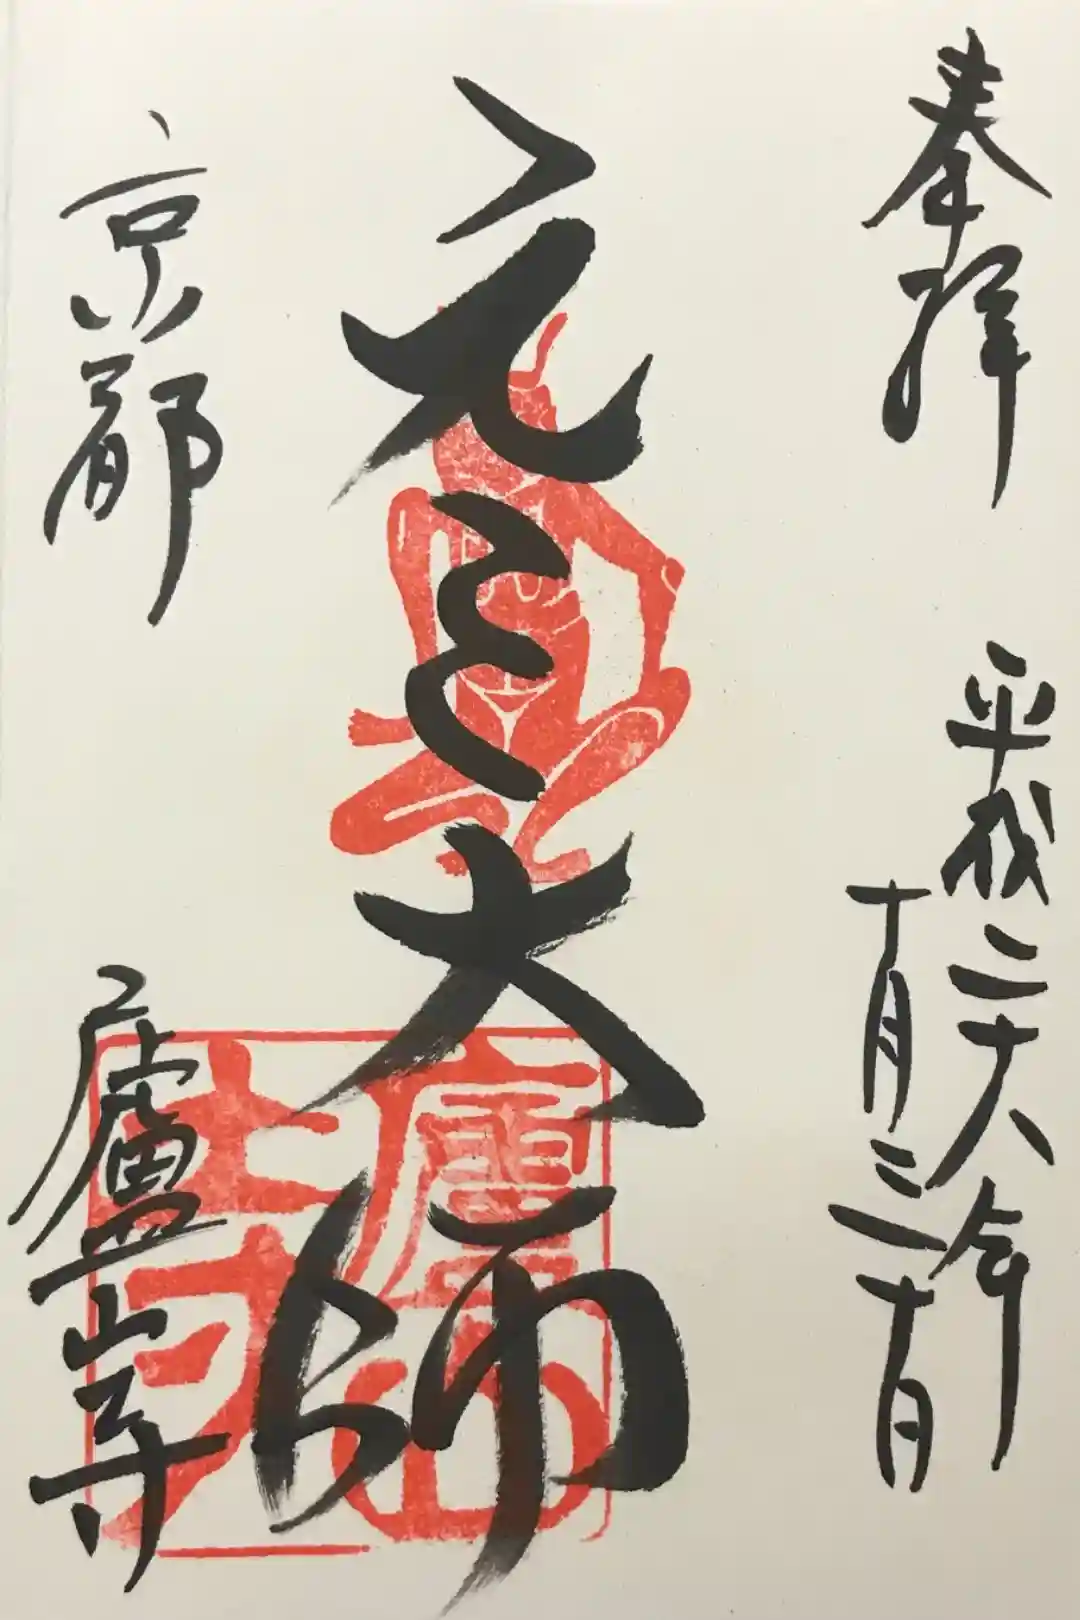 奉拝
平成二十八年
十月三十日
元三大師
京都
廬山寺
廬山寺印